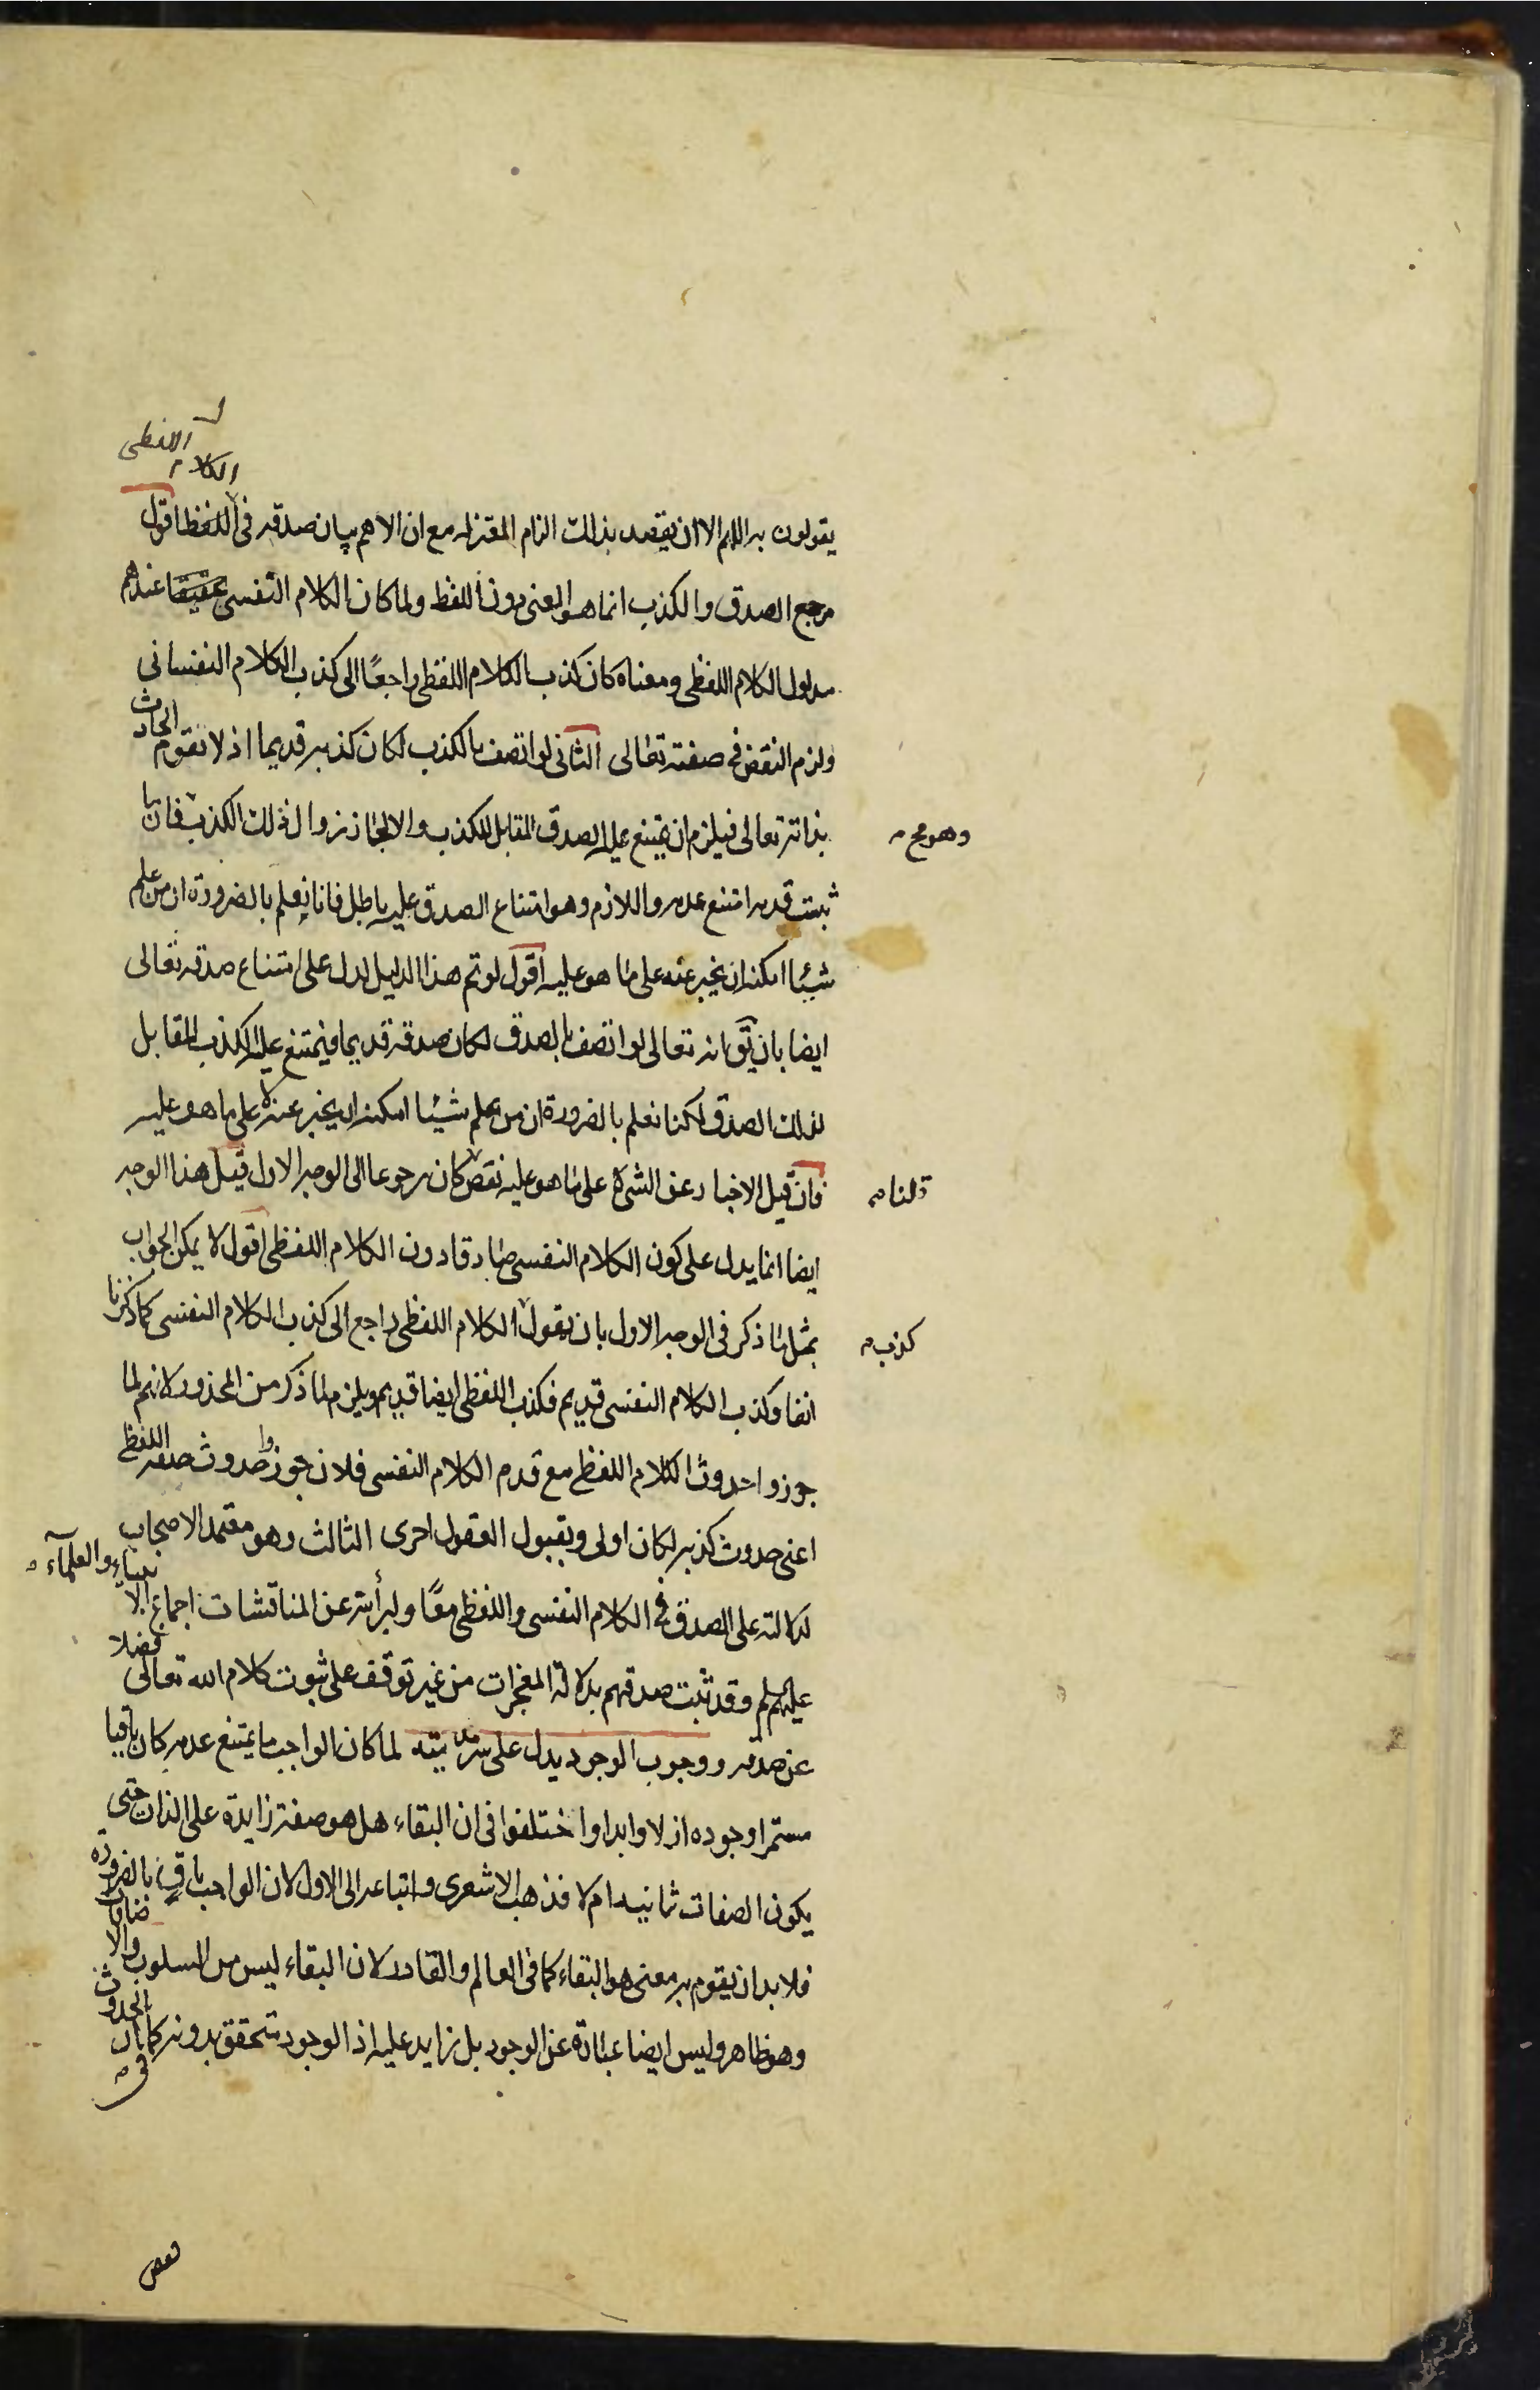 اللفظى
الكلام
يقولون به اللهم الا ان يقصد بذلك الزام المعتزله مع ان الاهم بيان صدقه فى اللفظ اقول
مرجع الصدق والكذب انما هو المعنى دون اللفظ ولما كان الكلام النفسى عندهم
مدلول الكلام اللفظى ومعناه كان كذب الكلام اللفظى راجعًا الى كذب الكلام النفسانى
ولزم النقض فى صفته تعالى الثانى لو اتصف بالكذب لكان كذبه قديما اذ لا يقوم الحادث
بذاته تعالى فيلزم ان يمتنع عليه الصدق المقابل للكذب والا لجاز زوال ذلك الكذب فان ما
وهو مح
ثبت قدمه امتنع عدمه واللازم وهو امتناع الصدق عليه باطل فانا نعلم بالضرورة ان من علم
شيئا امكنه ان يخبر عنه على ما هو عليه اقول لو تم هذا الدليل لدل على امتناع صدقه تعالى
ايضا بان يق انه تعالى لو اتصف بالصدق لكان صدقه قديما فيمتنع عليه الكذب المقابل
لذلك الصدق لكنا نعلم بالضرورة ان من علم شيئا امكنه ان يخبر عنه لا على ما هو عليه
فان قيل الاخبار عن الشئ لا على ما هو عليه نقص كان رجوعا الى الوجه الاول قيل هذا الوجه
قلنا
ايضا انما يدل على كون الكلام النفسى صادقا دون الكلام اللفظى اقول لا يمكن الجواب
بمثل ما ذكر فى الوجه الاول بان يقول الكلام اللفظى راجع الى كذب الكلام النفسى كما ذكرنا
كذب
انفا وكذب الكلام النفسى قديم فكذب اللفظى ايضا قديم ويلزم ما ذكر من المحذور لانهم لما
جوزوا حدوث الكلام اللفظى مع قدم الكلام النفسى فلان جوزوا حدوث صفه اللفظى
اعنى حدوث كذبه لكان اولى وبقبول العقول احرى الثالث وهو معتمد الاصحاب
لدلالته على الصدق فى الكلام النفسى واللفظى معًا ولبرأته عن المناقشات اجماع الا
نبياء والعلمآء
عليهم سلم وقد ثبت صدقهم بدلالة المعجزات من غير توقف على ثبوت كلام الله تعالى فضلا
عن صدقه ووجوب الوجود يدل على سرمديته لما كان الواجب ما يمتنع عدمه كان باقيا
مستمرا وجوده ازلا وابدا واختلفوا فى ان البقاء هل هو صفة زايدة على الذات حتى
يكون الصفات ثمانيه ام لا فذهب الاشعرى واتباعه الى الاول لان الواجب باق بالضرورة
فلا بد ان يقوم به معنى هو البقاء كما فى العالم والقادر لان البقاء ليس من السلوب والا
ضافات
وهو ظاهر وليس ايضا عبارة عن الوجود بل زايد عليه اذ الوجود يتحقق بدونه كما فى ان
الحدوث